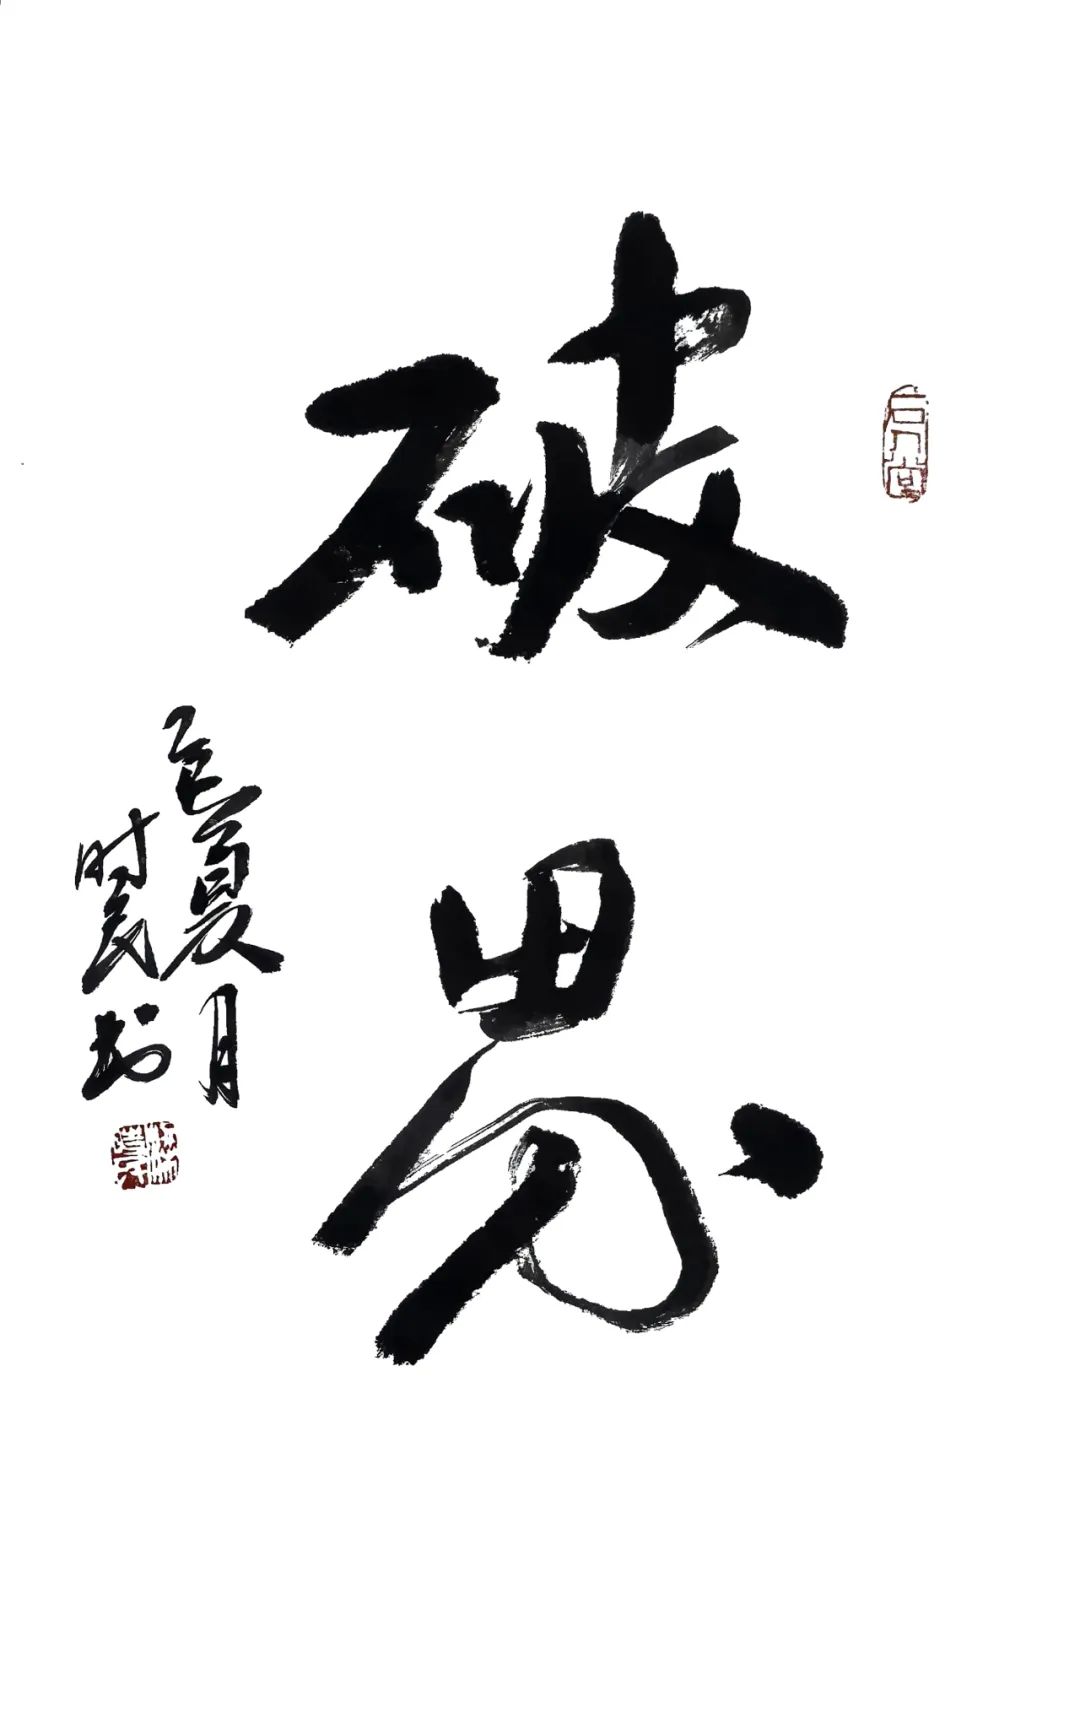 破界
乙巳夏月
时民书